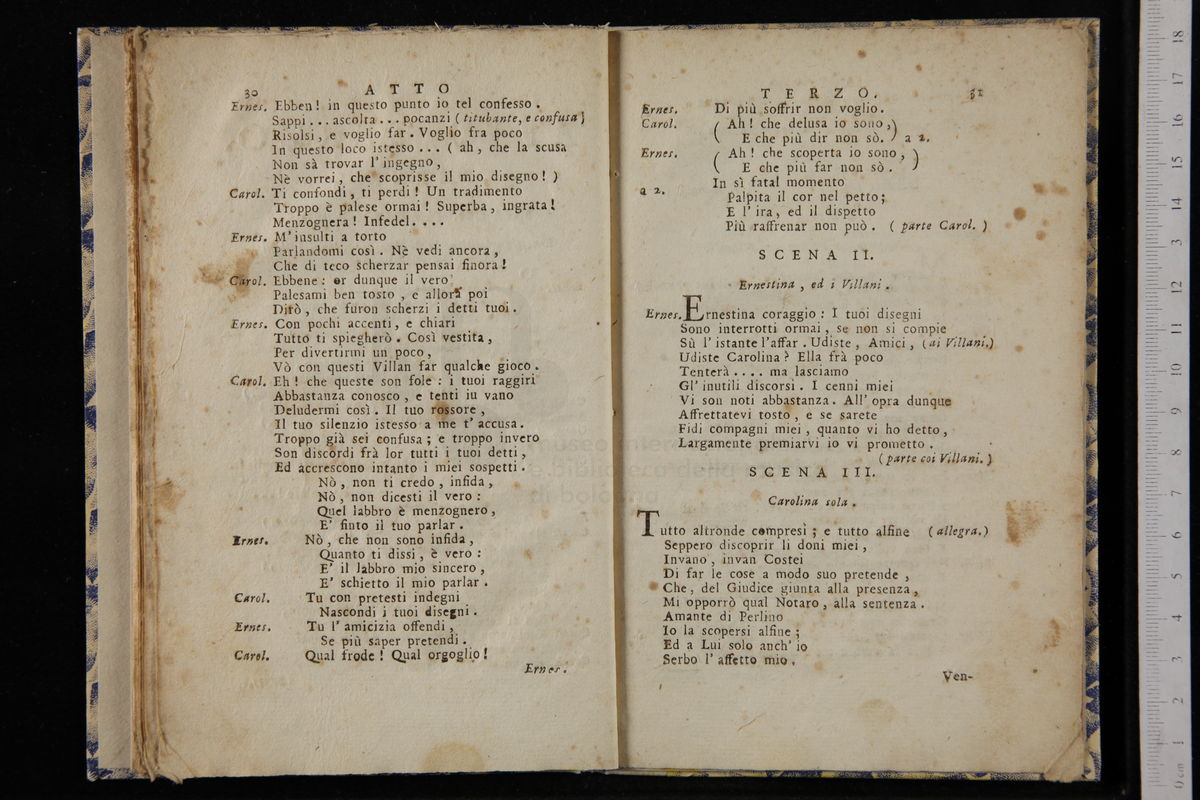 30 ATTO
Ernes. Ebben! in questo punto io tel confesso.
Sappi... ascolta... pocanzi (titubante, e confusa)
Risolsi, e voglio far. Voglio fra poco
In questo loco istesso... ( ah, che la scusa
Non sà trovar l'ingegno,
Nè vorrei, che scoprisse il mio disegno! )
Carol. Ti confondi, ti perdi! Un tradimento
Troppo è palese ormai! Superba, ingrata!
Menzognera! Infedel....
Ernes. M'insulti a torto
Parlandomi così. Nè vedi ancora,
Che di teco scherzar pensai finora!
Carol. Ebbene: or dunque il vero
Palesami ben tosto, e allora poi
Dirò, che furon scherzi i detti tuoi.
Ernes. Con pochi accenti, e chiari
Tutto ti spiegherò. Così vestita,
Per divertirmi un poco,
Vò con questi Villan far qualche gioco.
Carol. Eh! che queste son fole: i tuoi raggiri
Abbastanza conosco, e tenti iu vano
Deludermi così. Il tuo rossore,
Il tuo silenzio istesso a me t'accusa.
Troppo già sei confusa; e troppo invero
Son discordi frà lor tutti i tuoi detti,
Ed accrescono intanto i miei sospetti.
Nò, non ti credo, infida,
Nò, non dicesti il vero:
Quel labbro è menzognero,
E' finto il tuo parlar.
Ernes. Nò, che non sono infida,
Quanto ti dissi, è vero:
E' il labbro mio sincero,
E' schietto il mio parlar.
Carol. Tu con pretesti indegni
Nascondi i tuoi disegni.
Ernes. Tu l'amicizia offendi,
Se più saper pretendi.
Carol. Qual frode! Qual orgoglio!
Ernes.
TERZO. 31
Ernes. Di più soffrir non voglio.
Carol. ( Ah! che delusa io sono,)
( E che più dir non sò. ) a 2.
Ernes. ( Ah! che scoperta io sono, )
( E che più far non sò. )
In sì fatal momento
a 2. Palpita il cor nel petto;
E l'ira, ed il dispetto
Più raffrenar non può. ( parte Carol. )
SCENA II.
Ernestina, ed i Villani.
Ernes. Ernestina coraggio: I tuoi disegni
Sono interrotti ormai, se non si compie
Sù l'istante l'affar. Udiste, Amici, (ai Villani.)
Udiste Carolina? Ella frà poco
Tenterà.... ma lasciamo
Gl'inutili discorsi. I cenni miei
Vi son noti abbastanza. All'opra dunque
Affrettatevi tosto, e se sarete
Fidi compagni miei, quanto vi ho detto,
Largamente premiarvi io vi prometto.
(parte coi Villani.)
SCENA III.
Carolina sola.
Tutto altronde compresi; e tutto alfine (allegra.)
Seppero discoprir li doni miei,
Invano, invan Costei
Di far le cose a modo suo pretende,
Che, del Giudice giunta alla presenza,
Mi opporrò qual Notaro, alla sentenza.
Amante di Perlino
Io la scopersi alfine;
Ed a Lui solo anch'io
Serbo l'affetto mio.
Ven-